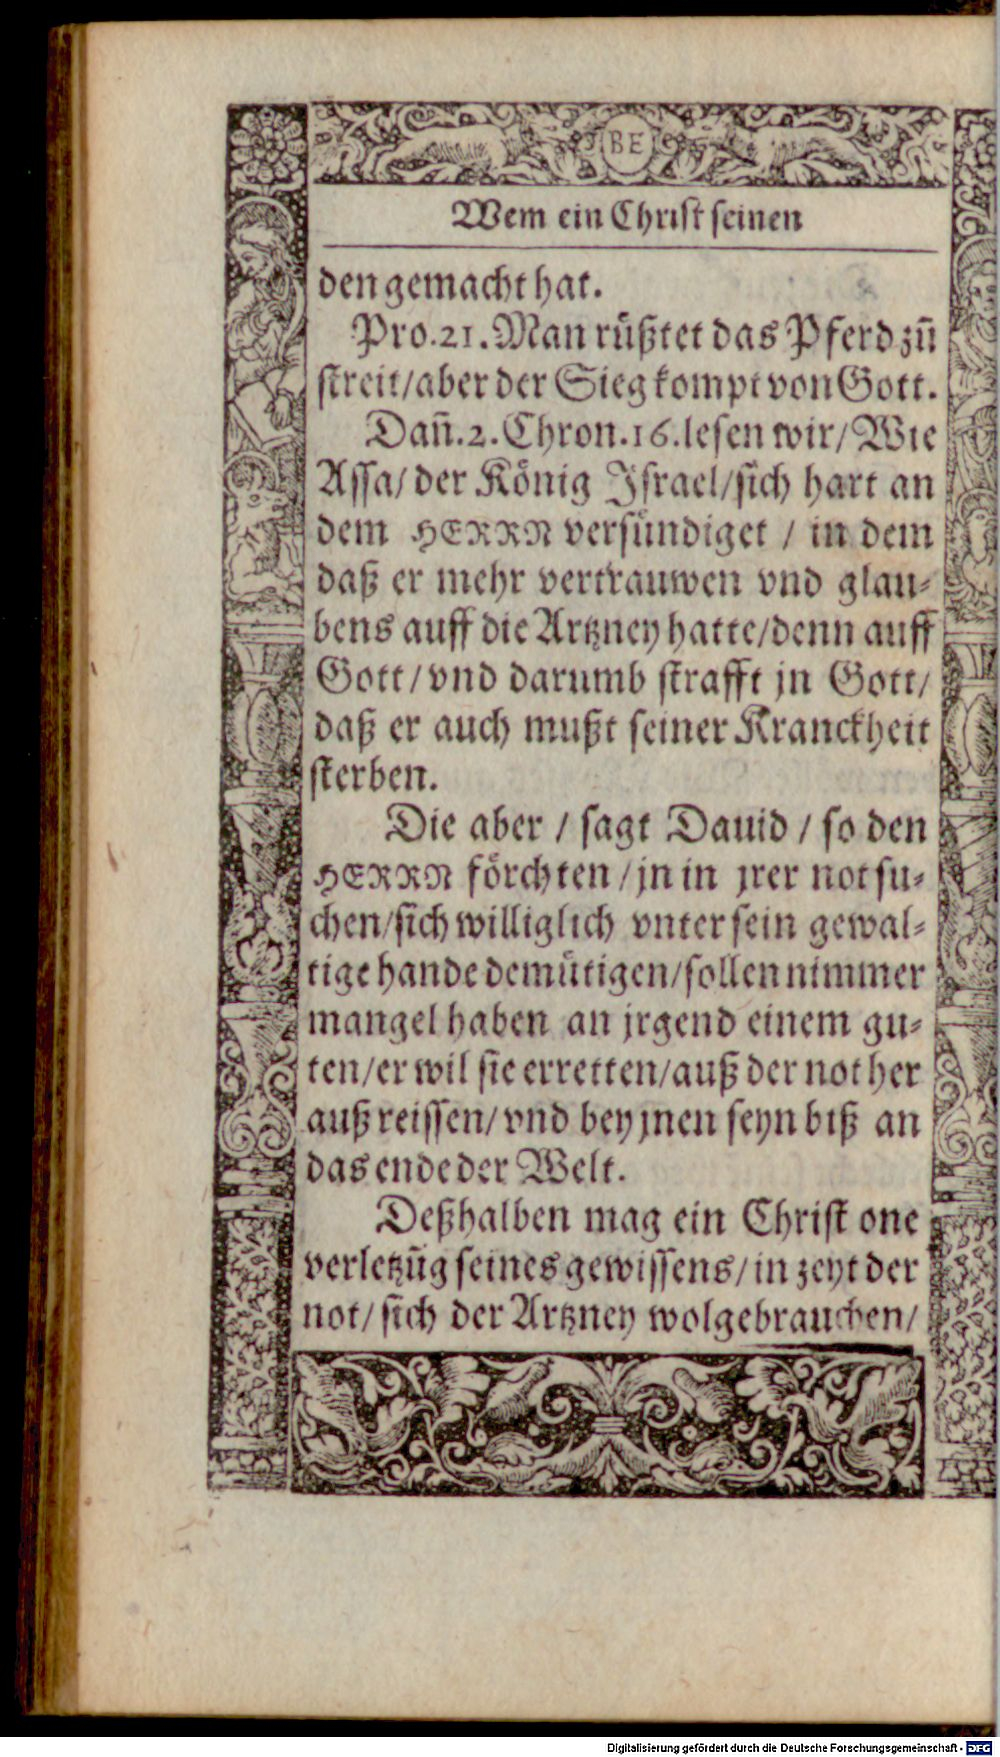 BE
Wem ein Christ seinen
den gemacht hat.
Pro. 21. Man rüßtet das Pferd zū
streit/ aber der Sieg kompt von Gott.
Dañ. 2. Chron. 16. lesen wir/ Wie
Assa/ der König Israel/ sich hart an
dem HERRN versündiget / in dem
daß er mehr vertrauwen vnd glau-
bens auff die Artzney hatte/ denn auff
Gott/ vnd darumb strafft jn Gott/
daß er auch mußt seiner Kranckheit
sterben.
Die aber / sagt Dauid / so den
HERRN förchten / jn in jrer not su-
chen/ sich williglich vnter sein gewal-
tige hande demütigen/ sollen nimmer
mangel haben an jrgend einem gu-
ten/ er wil sie erretten/ auß der not her
auß reissen/ vnd bey jnen seyn biß an
das ende der Welt.
Deßhalben mag ein Christ one
verletzūg seines gewissens/ in zeyt der
not/ sich der Artzney wolgebrauchen/
Digitalisierung gefördert durch die Deutsche Forschungsgemeinschaft - DFG